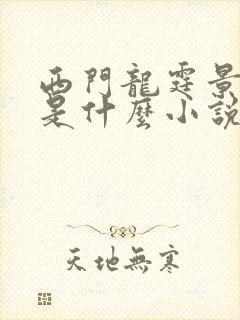 西門龍霆景
是什麼小說
天地無寒